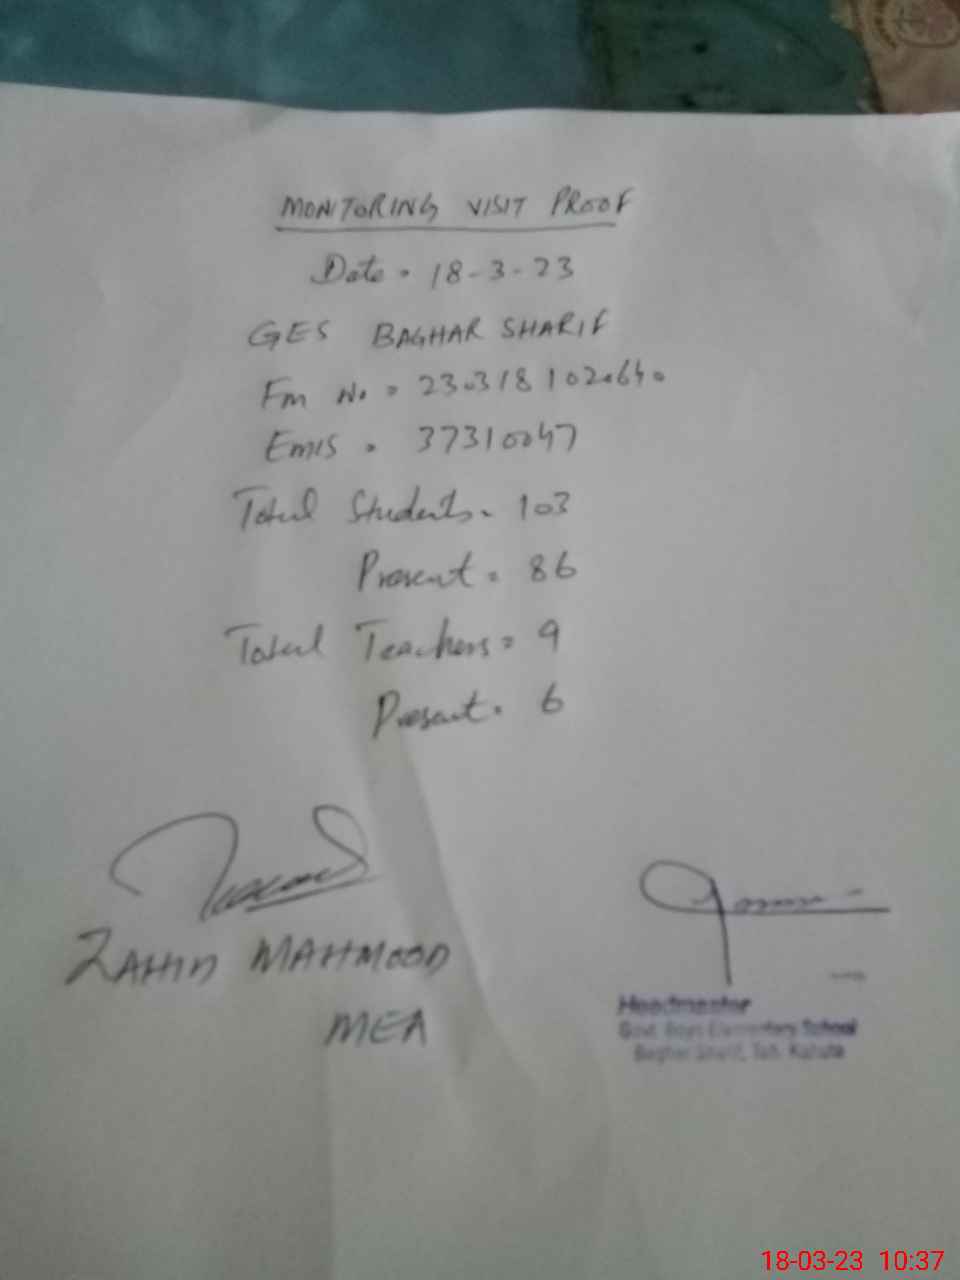 MONITORING VISIT PROOF
Date = 18-3-23
GES BAGHAR SHARIF
Fm No. = 2303181020640
EMIS = 37310047
Total Students = 103
Present = 86
Total Teachers = 9
Present = 6
ZAHID MAHMOOD
MEA
Headmaster
Govt. Boys Elementary School
Baghar Sharif, Teh. Kahuta
18-03-23 10:37